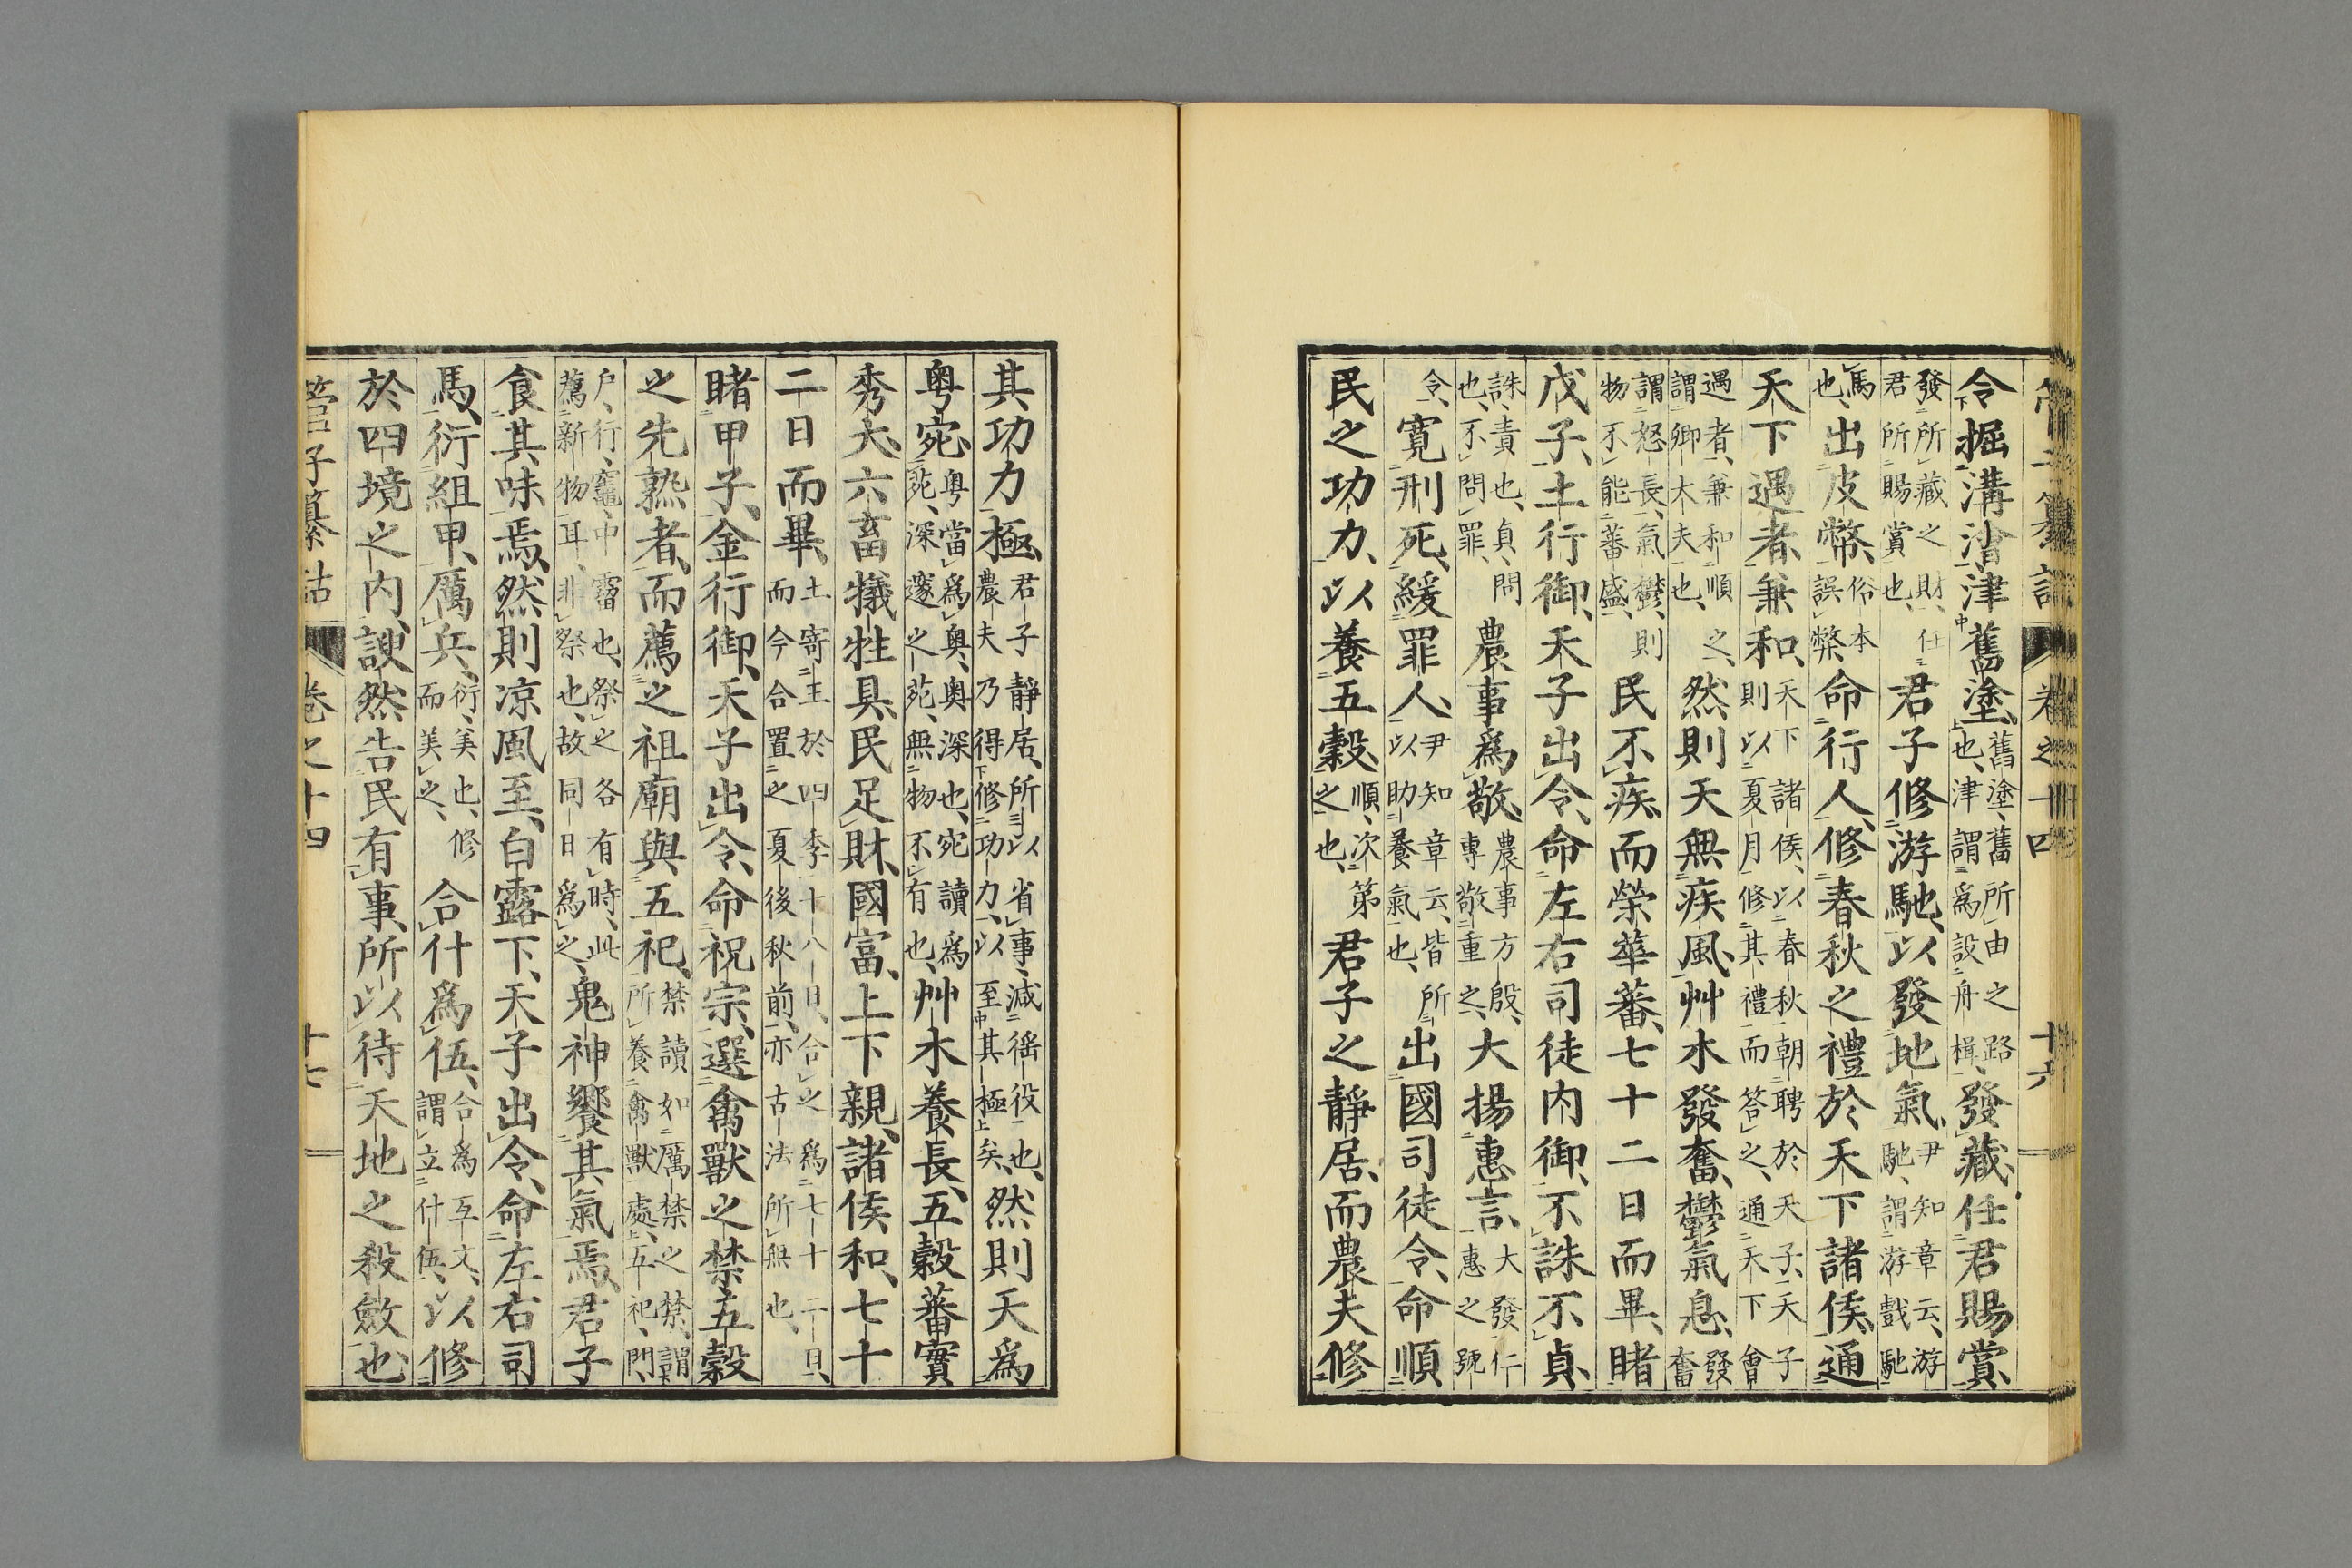 管子纂詁 卷之十四 十六
令掘溝澮津舊塗、舊塗、舊所由之路也、津謂爲設舟楫、發藏、任君賜賞、
發所藏之財、任君所賜賞也、君子修游馳、以發地氣、尹知章云、游馳、謂游戲馳
馬也、出皮幣、俗本誤弊、命行人、修春秋之禮於天下諸侯、通
天下遇者、兼和、天下諸侯、以春秋朝聘於天子、天子則以夏月修其禮而答之、通天下會
遇者、兼和順之、謂卿大夫也、然則天無疾風、艸木發奮、鬱氣息、發奮
謂怒長、氣鬱、則物不能蕃盛、民不疾、而榮華蕃、七十二日而畢、睹
戊子、土行御、天子出令、命左右司徒内御、不誅不貞、
誅、責也、貞、問也、不問罪、農事爲敬、農事方殷、專敬重之、大揚惠言、大發仁惠之號
令、寬刑死、緩罪人、尹知章云、皆所以助養氣也、出國司徒令、命順
民之功力、以養五穀、順、次第之也、君子之靜居、而農夫修
其功力極、君子靜居、所以省事、減徭役也、農夫乃得修功力、以至其極矣、然則天爲
粤宛、粤當爲奧、奧深也、宛讀爲苑、深邃之苑、無物不有也、艸木養長、五穀蕃實
秀大、六畜犠牲具、民足財、國富、上下親、諸侯和、七十
二日而畢、土寄王於四季十八日、合之爲七十二日、而今合置之夏後秋前、亦古法所無也、
睹甲子、金行御、天子出令、命祝宗、選禽獸之禁、五穀
之先熟者、而薦之祖廟與五祀、禁讀如厲禁之禁、謂所養禽獸處、五祀、門、
戶、行、竈、中霤也、祭之各有時、此薦新物耳、非祭也、故同日爲之、鬼神饗其氣焉、君子
食其味焉、然則凉風至、白露下、天子出令、命左右司
馬、衍組甲、厲兵、衍、美也、修而美之、合什爲伍、合爲互文、謂立什伍、以修
於四境之内、諛然告民有事、所以待天地之殺斂也、
管子纂詁 卷之十四 十七